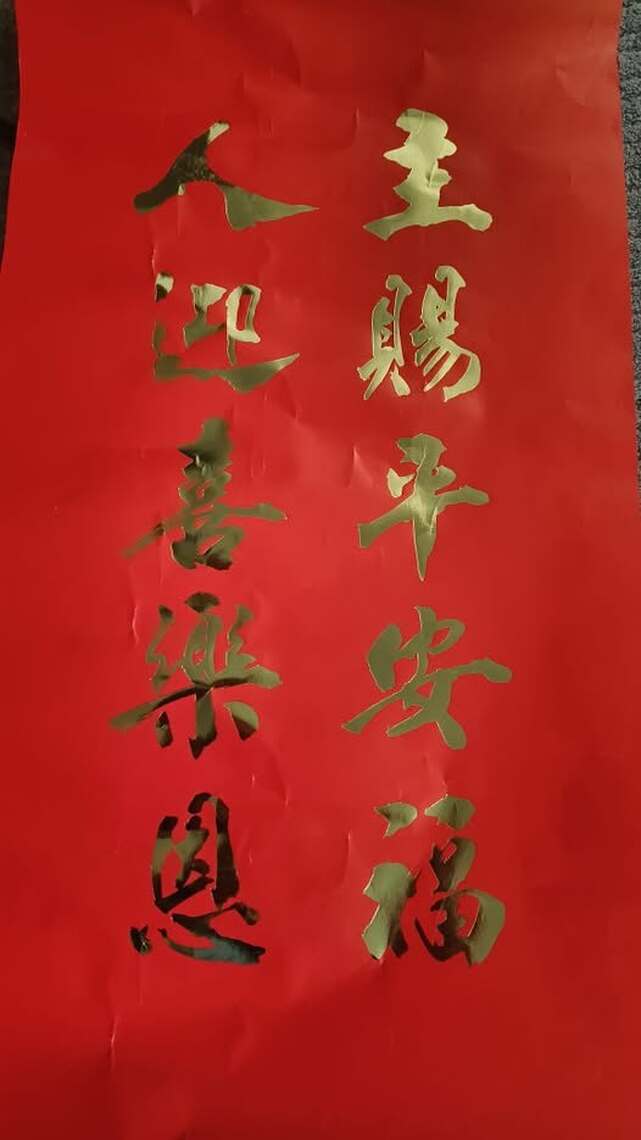 主賜平安福
人迎喜樂恩